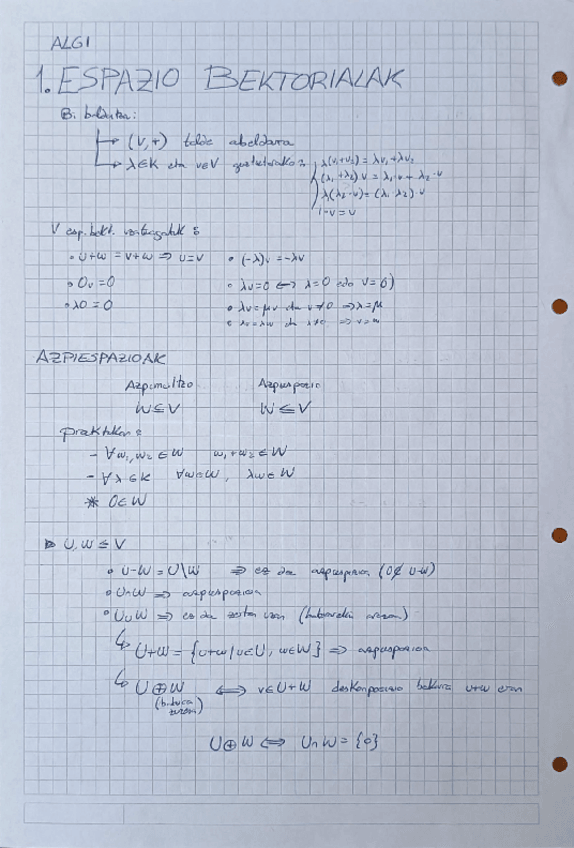 ALGI
1. ESPAZIO BEKTORIALAK
Bi baldintza:
(V,+) talde abeldarra
λ∈K eta v∈V guztietarako: λ(v₁+v₂) = λv₁+λv₂
(λ₁+λ₂)v = λ₁·v + λ₂·v
λ₁(λ₂·v) = (λ₁λ₂)·v
1·v = v
V esp. bekt.
• u+w = v+w ⇒ u=v • (-λ)v = -λv
• 0v = 0 • λv=0 ⟺ λ=0 edo v=0)
• λ0 = 0 • λv=μv eta v≠0 ⇒ λ=μ
• λv=λw eta λ≠0 ⇒ v=w
AZPIESPAZIOAK
Azpimultzo Azpiespazio
W⊆V W≤V
praktikan:
- ∀w₁,w₂∈W w₁+w₂∈W
- ∀λ∈K ∀w∈W, λw∈W
* 0∈W
▷ U,W ≤ V
• U-W = U\W ⇒ ez da azpiespazioa (0∉U-W)
• U∩W ⇒ azpiespazioa
• U∪W ⇒ ez da zertan izan
↳ U+W = {u+w / u∈U, w∈W} ⇒ azpiespazioa
↳ U⊕W ⟺ v∈U+W deskonposizio bakarra u+w eran
(batura zuzena)
U⊕W ⟺ U∩W = {0}